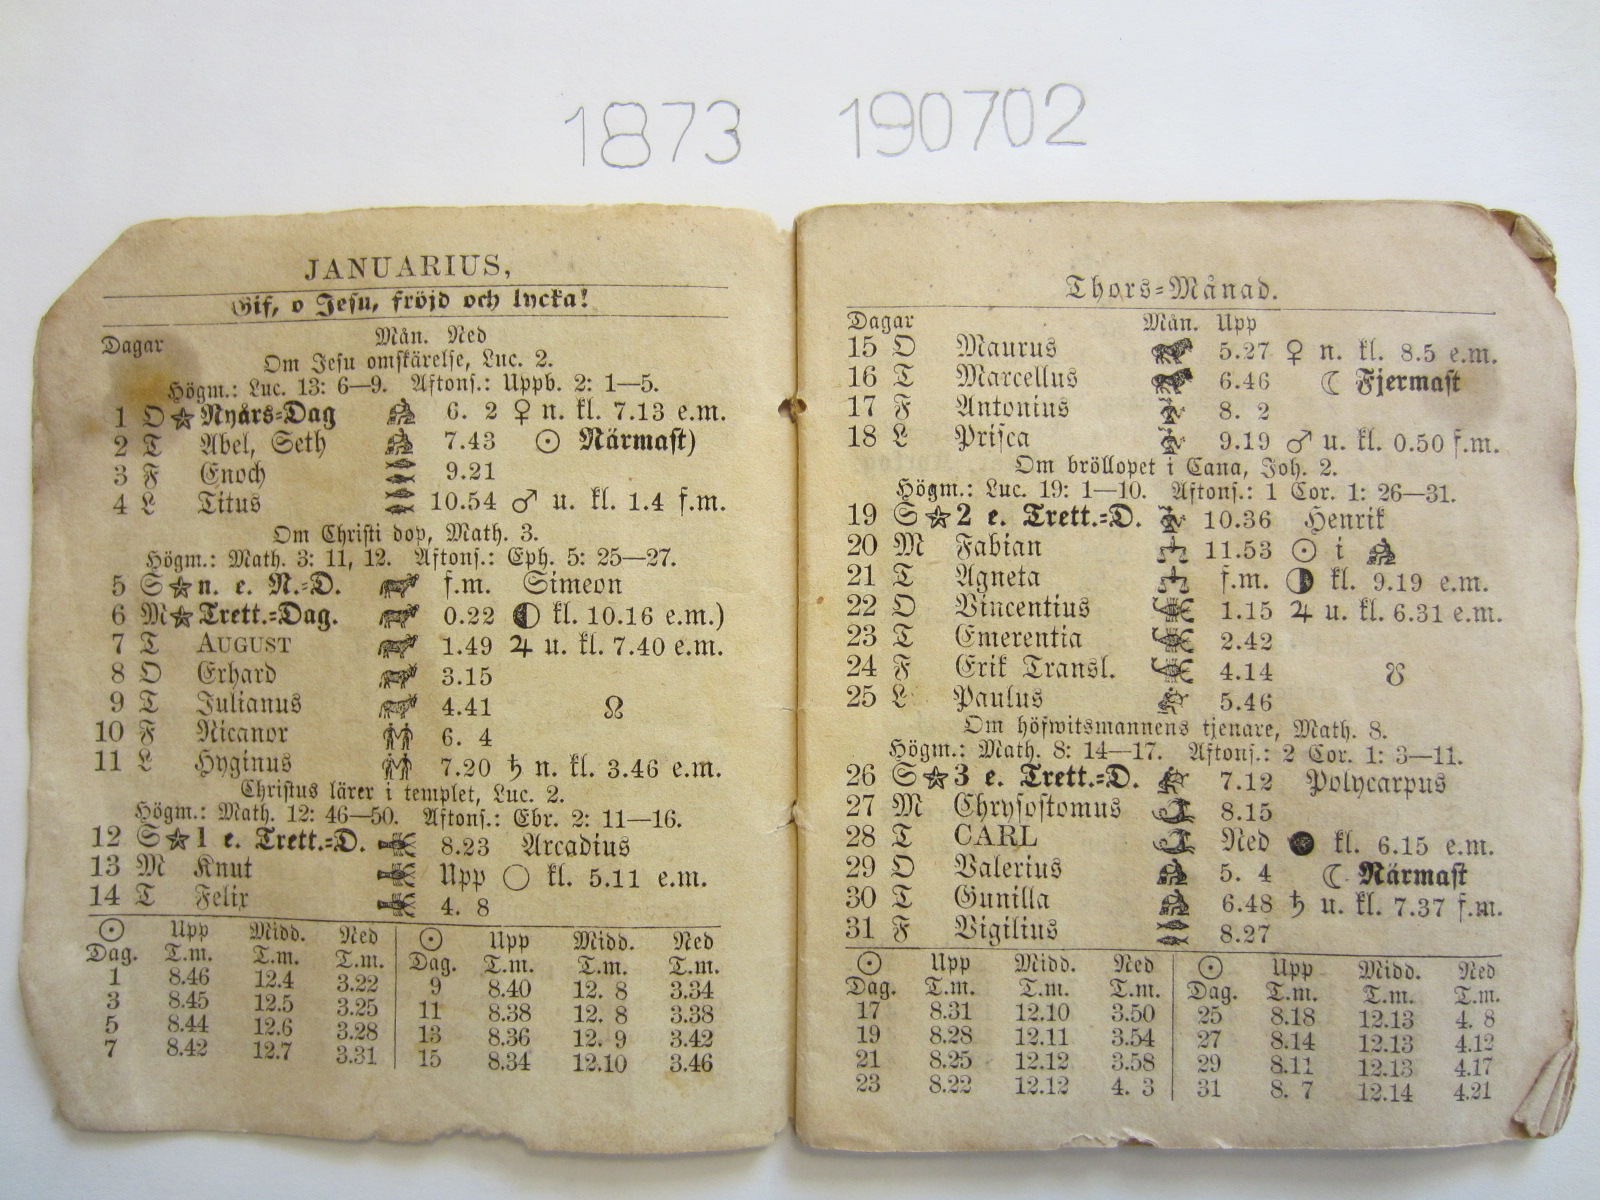 1873 190702
JANUARIUS,
Gif, o Jesu, fröjd och lycka!
Dagar Mån. Ned
Om Jesu omskärelse, Luc. 2.
Högm.: Luc. 13: 6—9. Aftons.: Uppb. 2: 1—5.
1 O ☆ Nyårs=Dag 6. 2 ♀ n. kl. 7.13 e.m.
2 T Abel, Seth 7.43 ☉ Närmast)
3 F Enoch 9.21
4 L Titus 10.54 ♂ u. kl. 1.4 f.m.
Om Christi dop, Math. 3.
Högm.: Math. 3: 11, 12. Aftons.: Eph. 5: 25—27.
5 S ☆ n. e. N.=D. f.m. Simeon
6 M ☆ Trett.=Dag. 0.22 ◐ kl. 10.16 e.m.)
7 T AUGUST 1.49 ♃ u. kl. 7.40 e.m.
8 O Erhard 3.15
9 T Julianus 4.41 ☊
10 F Nicanor 6. 4
11 L Hyginus 7.20 ♄ n. kl. 3.46 e.m.
Christus lärer i templet, Luc. 2.
Högm.: Math. 12: 46—50. Aftons.: Ebr. 2: 11—16.
12 S ☆ 1 e. Trett.=D. 8.23 Arcadius
13 M Knut Upp ○ kl. 5.11 e.m.
14 T Felix 4. 8
☉ Upp Midd. Ned ☉ Upp Midd. Ned
Dag. T.m. T.m. T.m. Dag. T.m. T.m. T.m.
1 8.46 12.4 3.22 9 8.40 12. 8 3.34
3 8.45 12.5 3.25 11 8.38 12. 8 3.38
5 8.44 12.6 3.28 13 8.36 12. 9 3.42
7 8.42 12.7 3.31 15 8.34 12.10 3.46
Thors=Månad.
Dagar Mån. Upp
15 O Maurus 5.27 ♀ n. kl. 8.5 e.m.
16 T Marcellus 6.46 ☾ Fjermast
17 F Antonius 8. 2
18 L Prisca 9.19 ♂ u. kl. 0.50 f.m.
Om bröllopet i Cana, Joh. 2.
Högm.: Luc. 19: 1—10. Aftons.: 1 Cor. 1: 26—31.
19 S ☆ 2 e. Trett.=D. 10.36 Henrik
20 M Fabian 11.53 ☉ i
21 T Agneta f.m. ◑ kl. 9.19 e.m.
22 O Vincentius 1.15 ♃ u. kl. 6.31 e.m.
23 T Emerentia 2.42
24 F Erik Transl. 4.14 ☋
25 L Paulus 5.46
Om höfwitsmannens tjenare, Math. 8.
Högm.: Math. 8: 14—17. Aftons.: 2 Cor. 1: 3—11.
26 S ☆ 3 e. Trett.=D. 7.12 Polycarpus
27 M Chrysostomus 8.15
28 T CARL Ned ● kl. 6.15 e.m.
29 O Valerius 5. 4 ☾ Närmast
30 T Gunilla 6.48 ♄ u. kl. 7.37 f.m.
31 F Vigilius 8.27
☉ Upp Midd. Ned ☉ Upp Midd. Ned
Dag. T.m. T.m. T.m. Dag. T.m. T.m. T.m.
17 8.31 12.10 3.50 25 8.18 12.13 4. 8
19 8.28 12.11 3.54 27 8.14 12.13 4.12
21 8.25 12.12 3.58 29 8.11 12.13 4.17
23 8.22 12.12 4. 3 31 8. 7 12.14 4.21